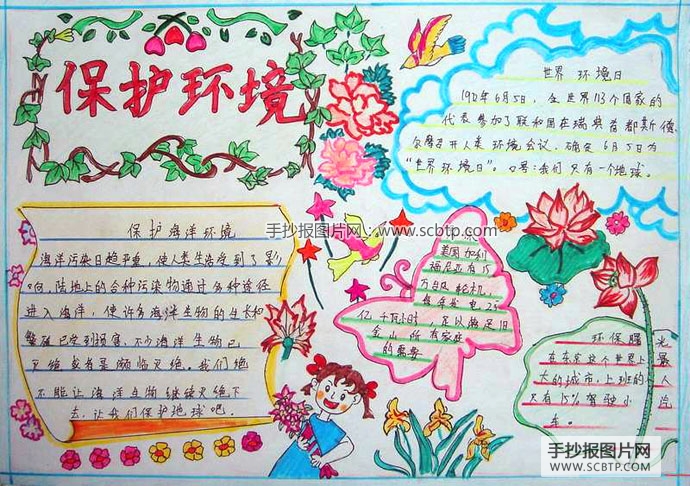 保护环境
世界环境日
年6月5日，全世界113个国家的
代表参加了联和国在瑞典首都斯德
尔摩召开人类环境会议，确定6月5日为
“世界环境日”。口号：我们只有一个地球。
手抄报图片网：www.scbtp.com
保护海洋环境
海洋污染日趋严重，使人类生受到了影
响，陆地上的各种污染物通过各种途径
进入海洋，使许多海洋生物的生长和
繁殖已受到损害，不少海洋生物已
灭绝或者是频临灭绝。我们绝
不能让海洋生物继续灭绝下
去，让我们保护地球吧。
美国加利
福尼亚有15
万台风轮机，
每年发电24
亿千瓦小时 足以满足旧
金山所有家庭
的需要
环保曙光
在东京这个世界上最
大的城市，上班的人
只有15%驾驶小汽
车。
手抄报图片网
WWW.SCBTP.COM